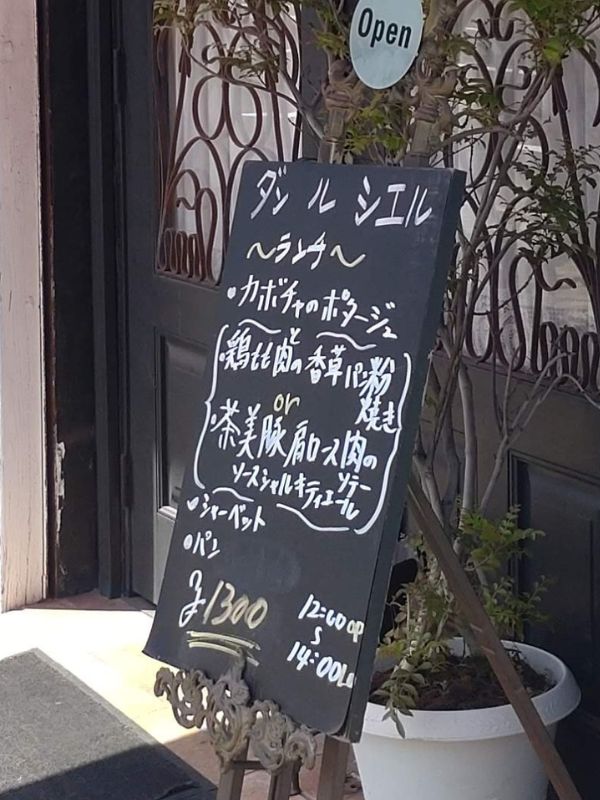 Open
ダン ル シエル
〜ランチ〜
・カボチャのポタージュ
・鶏もも肉の香草パン粉
焼き
or
・茶美豚肩ロース肉の
ソテー
ソースシャルキティエール
・シャーベット
・パン
1300
12:00 op
14:00 L.